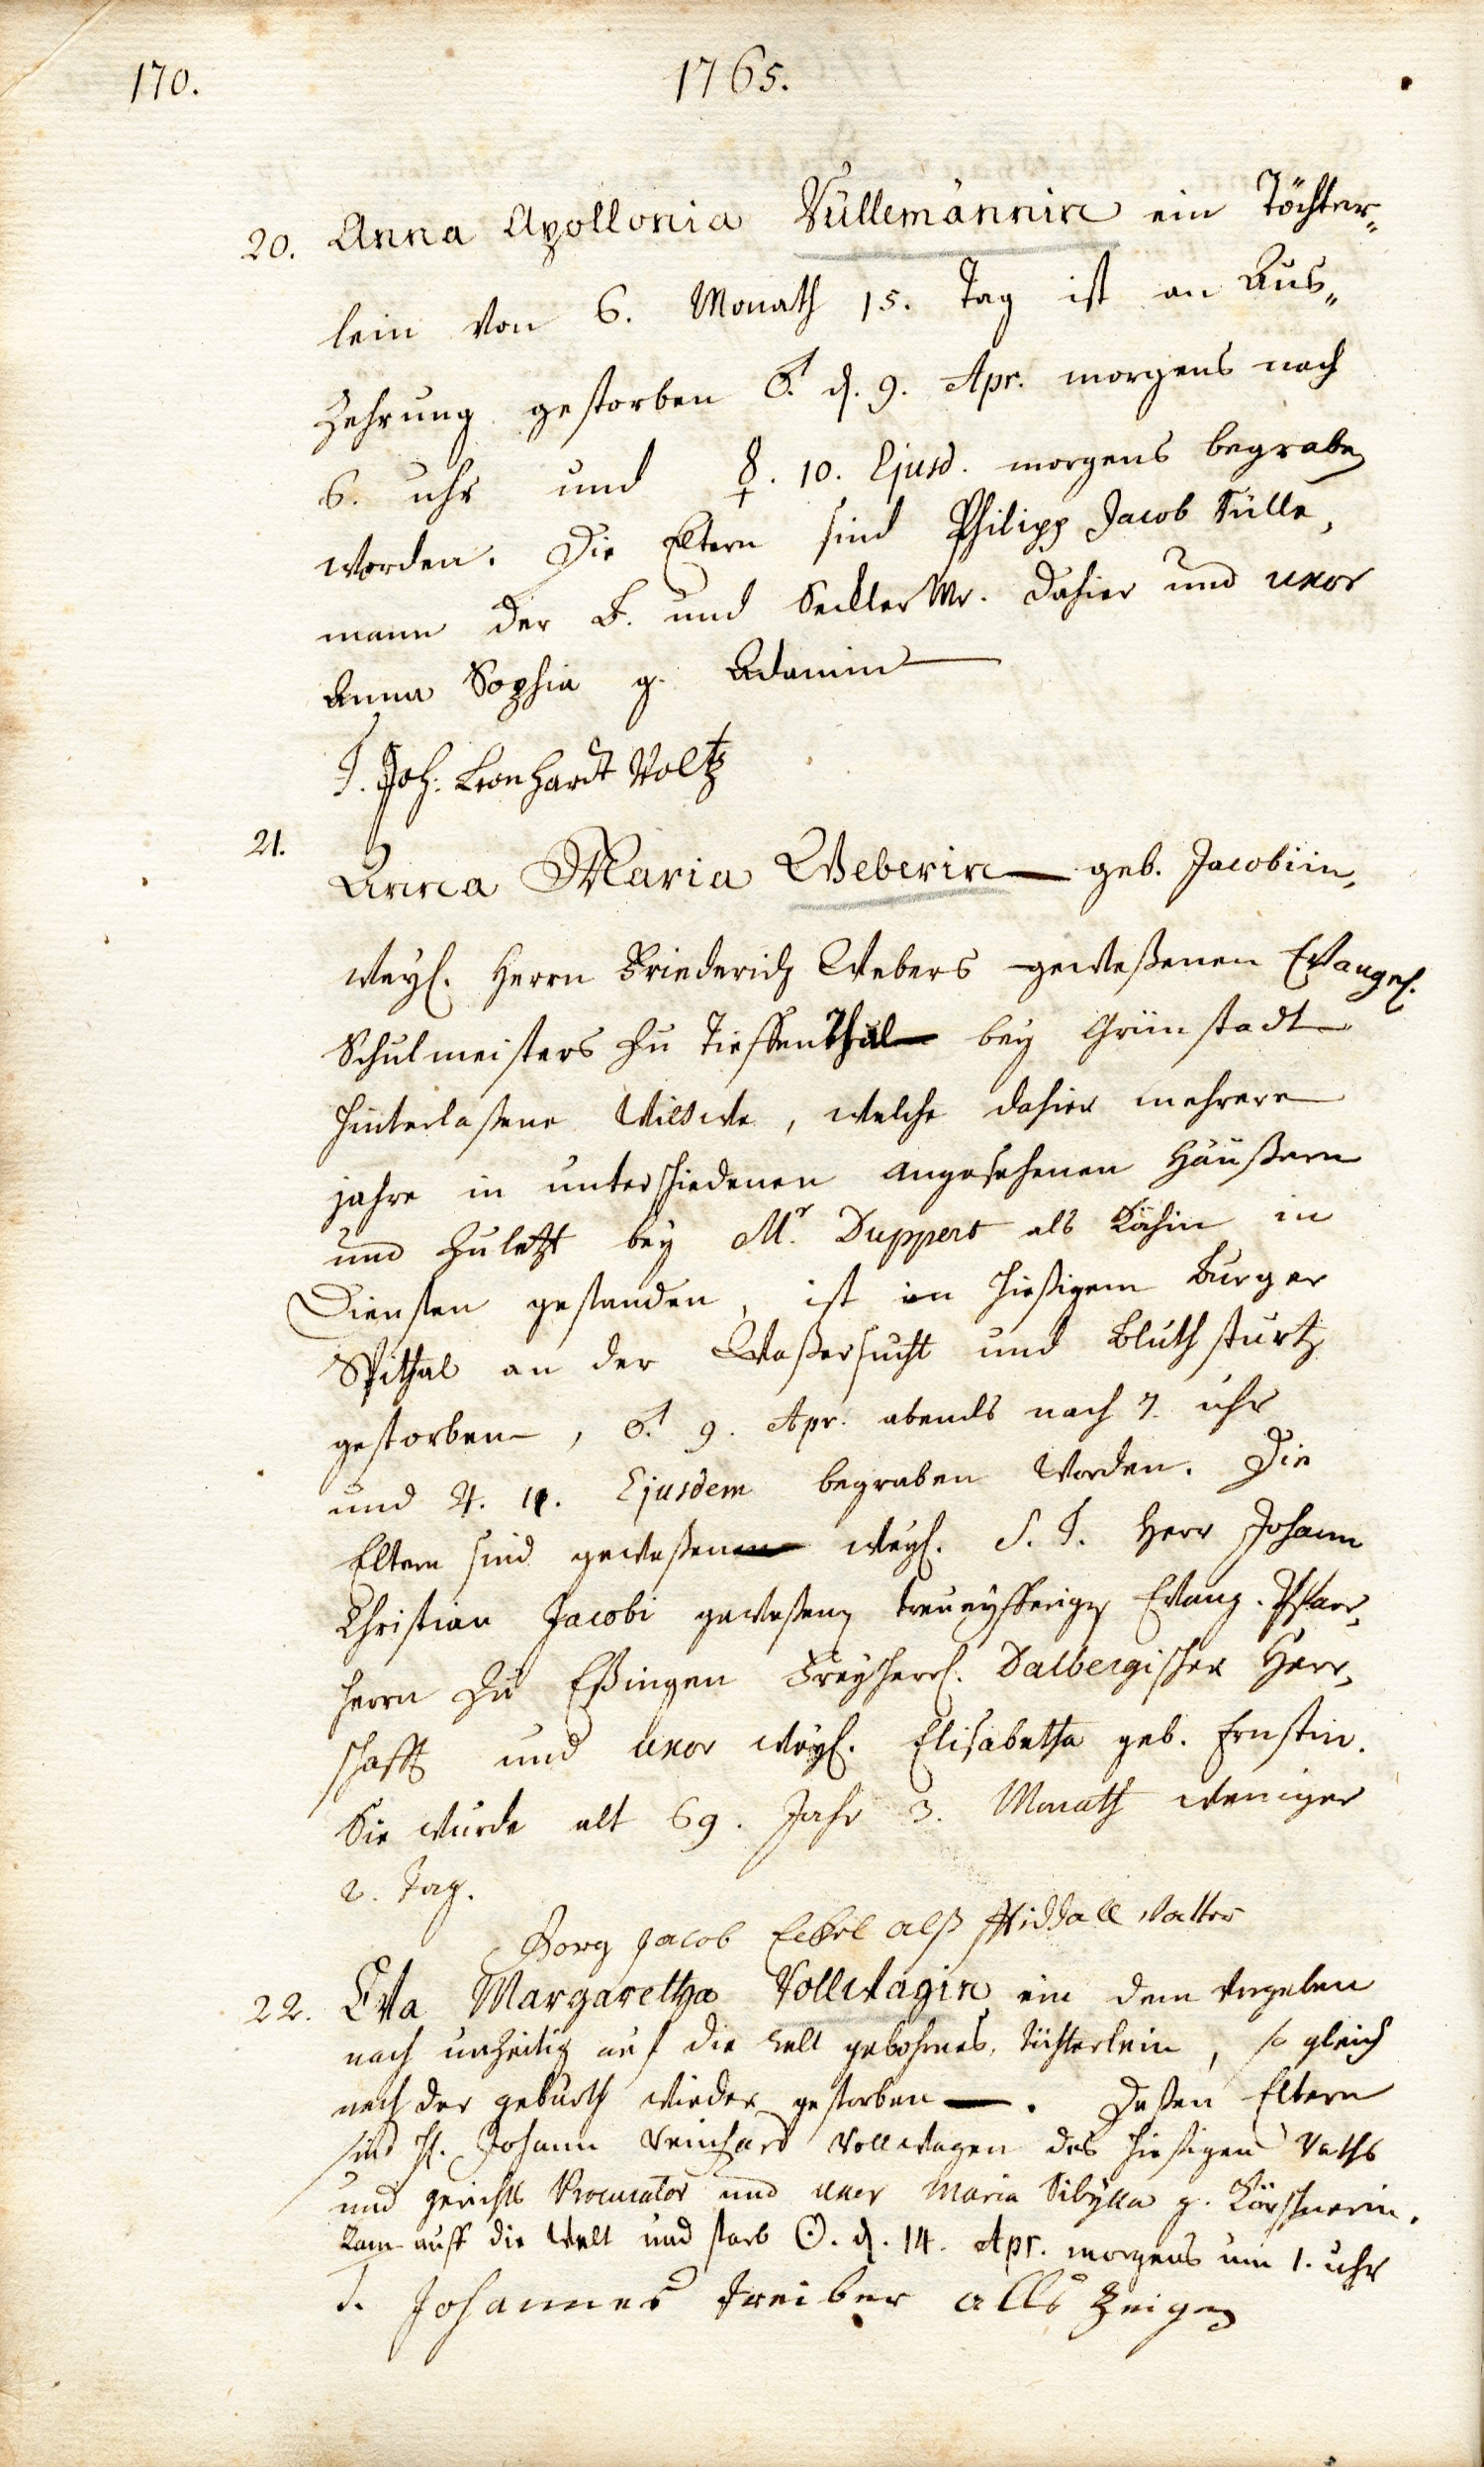 170.
1765.
20. Anna Apollonia Füllemännin ein Töchter„
lein von 6. Monath 15. Tag ist an Aus„
Zehrung gestorben ♂. d. 9. Apr. morgens nach
6. uhr und ☿. 10. Ejusd. morgens begraben
worden. Die Eltern sind Philipp Jacob Fülle,
mann der B. und Seckler Mr. dahier und uxor
Anna Sophia g. Adamin
T. Joh: Leonhardt Voltz
21.
Anna Maria Weberin geb. Jacobiin,
weyl. Herrn Friederich Webers gewesßenen Evangel.
Schulmeisters zu Tieffenthal bey Grünstadt
hinterlaßene Wittwe, welche dahier mehrere
jahre in unterschiedenen angesehenen Häußern
und zuletzt bey Mr Duppert als Köchin in
Diensten gestanden, ist in hießigem Burger
Spithal an der Waßersucht und Bluthsturtz
gestorben, ♂. 9. Apr. abends nach 7. uhr
und ♃. 11. Ejusdem begraben worden. Die
Eltern sind geweßenen weyl. S. T. Herr Johann
Christian Jacobi geweßener treueyfferiger Evang. Pfarr,
herrn zu Eßingen Freyherrl. Dalbergischer Herr,
schafft und uxor weyl. Elisabetha geb. Ernstin.
Sie wurde alt 69. Jahr 3. Monath weniger
2. Tag.
Jorg Jacob Eckel alß Spiddall Vatter
22. Eva Margaretha Vollwagin ein dem angeben
nach unzeitig auf die welt gebohrnes Töchterlein, so gleich
nach der geburth wieder gestorben. Deßen Eltern
sind H. Johann Reinhard Vollwagen des hiesigen Raths
und gerichts Procurator und uxor Maria Sibylla g. Körschnerin.
Kam auff die Welt und starb ☉. d. 14. Apr. morgens um 1. uhr
T. Johannes Treiber alls Zeigen